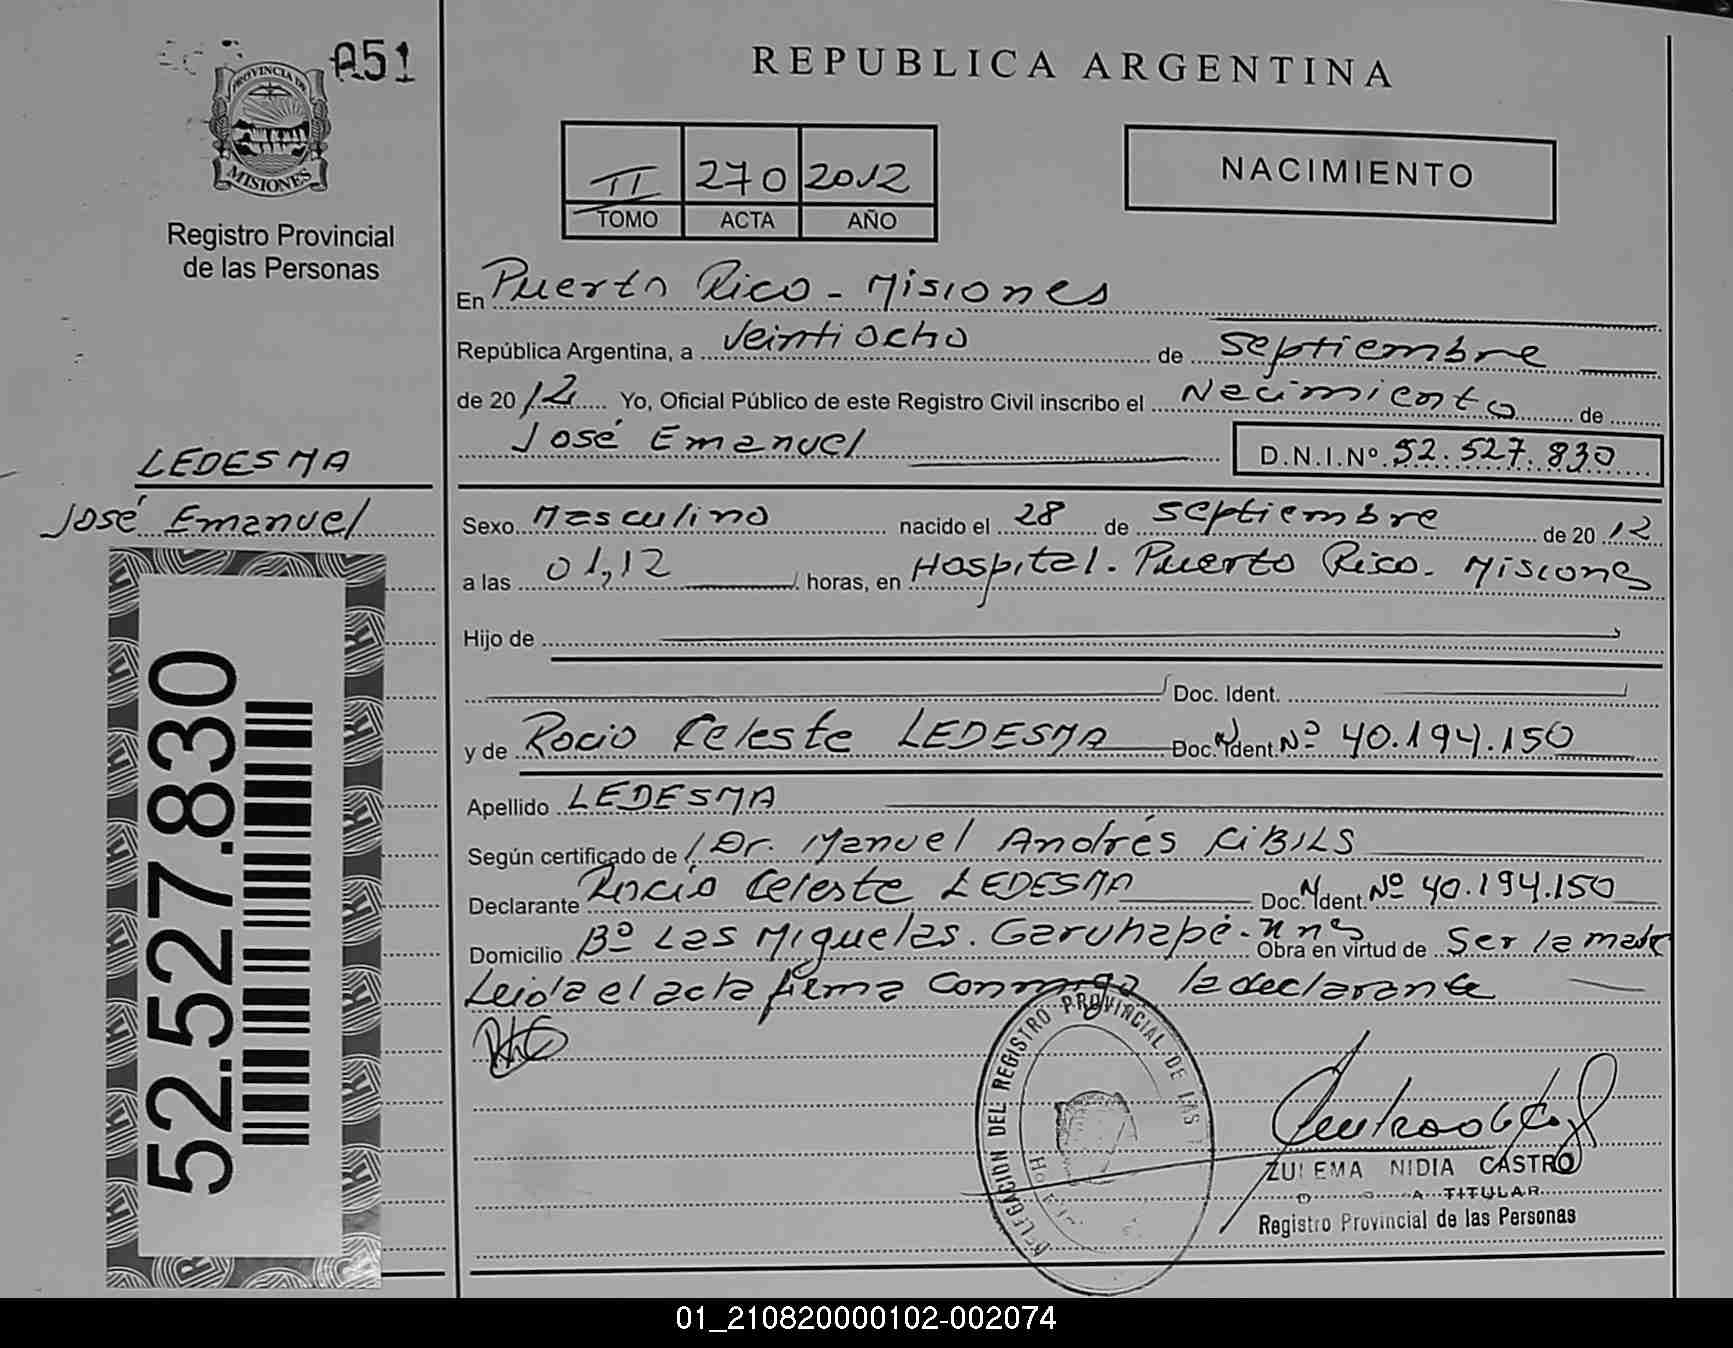 A51
PROVINCIA DE
MISIONES
Registro Provincial
de las Personas
REPUBLICA ARGENTINA
II 270 2012
TOMO ACTA AÑO
NACIMIENTO
En Puerto Rico - Misiones
República Argentina, a veintiocho de septiembre
de 2012 Yo, Oficial Público de este Registro Civil inscribo el Nacimiento de
José Emanuel D.N.I.Nº 52.527.830
LEDESMA
José Emanuel
Sexo Masculino nacido el 28 de septiembre de 2012
a las 01,12 horas, en Hospital. Puerto Rico. Misiones
Hijo de
Doc. Ident.
y de Rocio Celeste LEDESMA Doc. Ident. Nº 40.194.150
Apellido LEDESMA
Según certificado de Dr. Manuel Andrés KIBILS
Declarante Rocio Celeste LEDESMA Doc. Ident. Nº 40.194.150
Domicilio Bº Las Miguelas. Garuhapé - Mnes Obra en virtud de Ser la madre
Leida el acta firma conmigo la declarante
52.527.830
DELEGACION DEL REGISTRO PROVINCIAL DE LAS
ZULEMA NIDIA CASTRO
TITULAR
Registro Provincial de las Personas
01_210820000102-002074